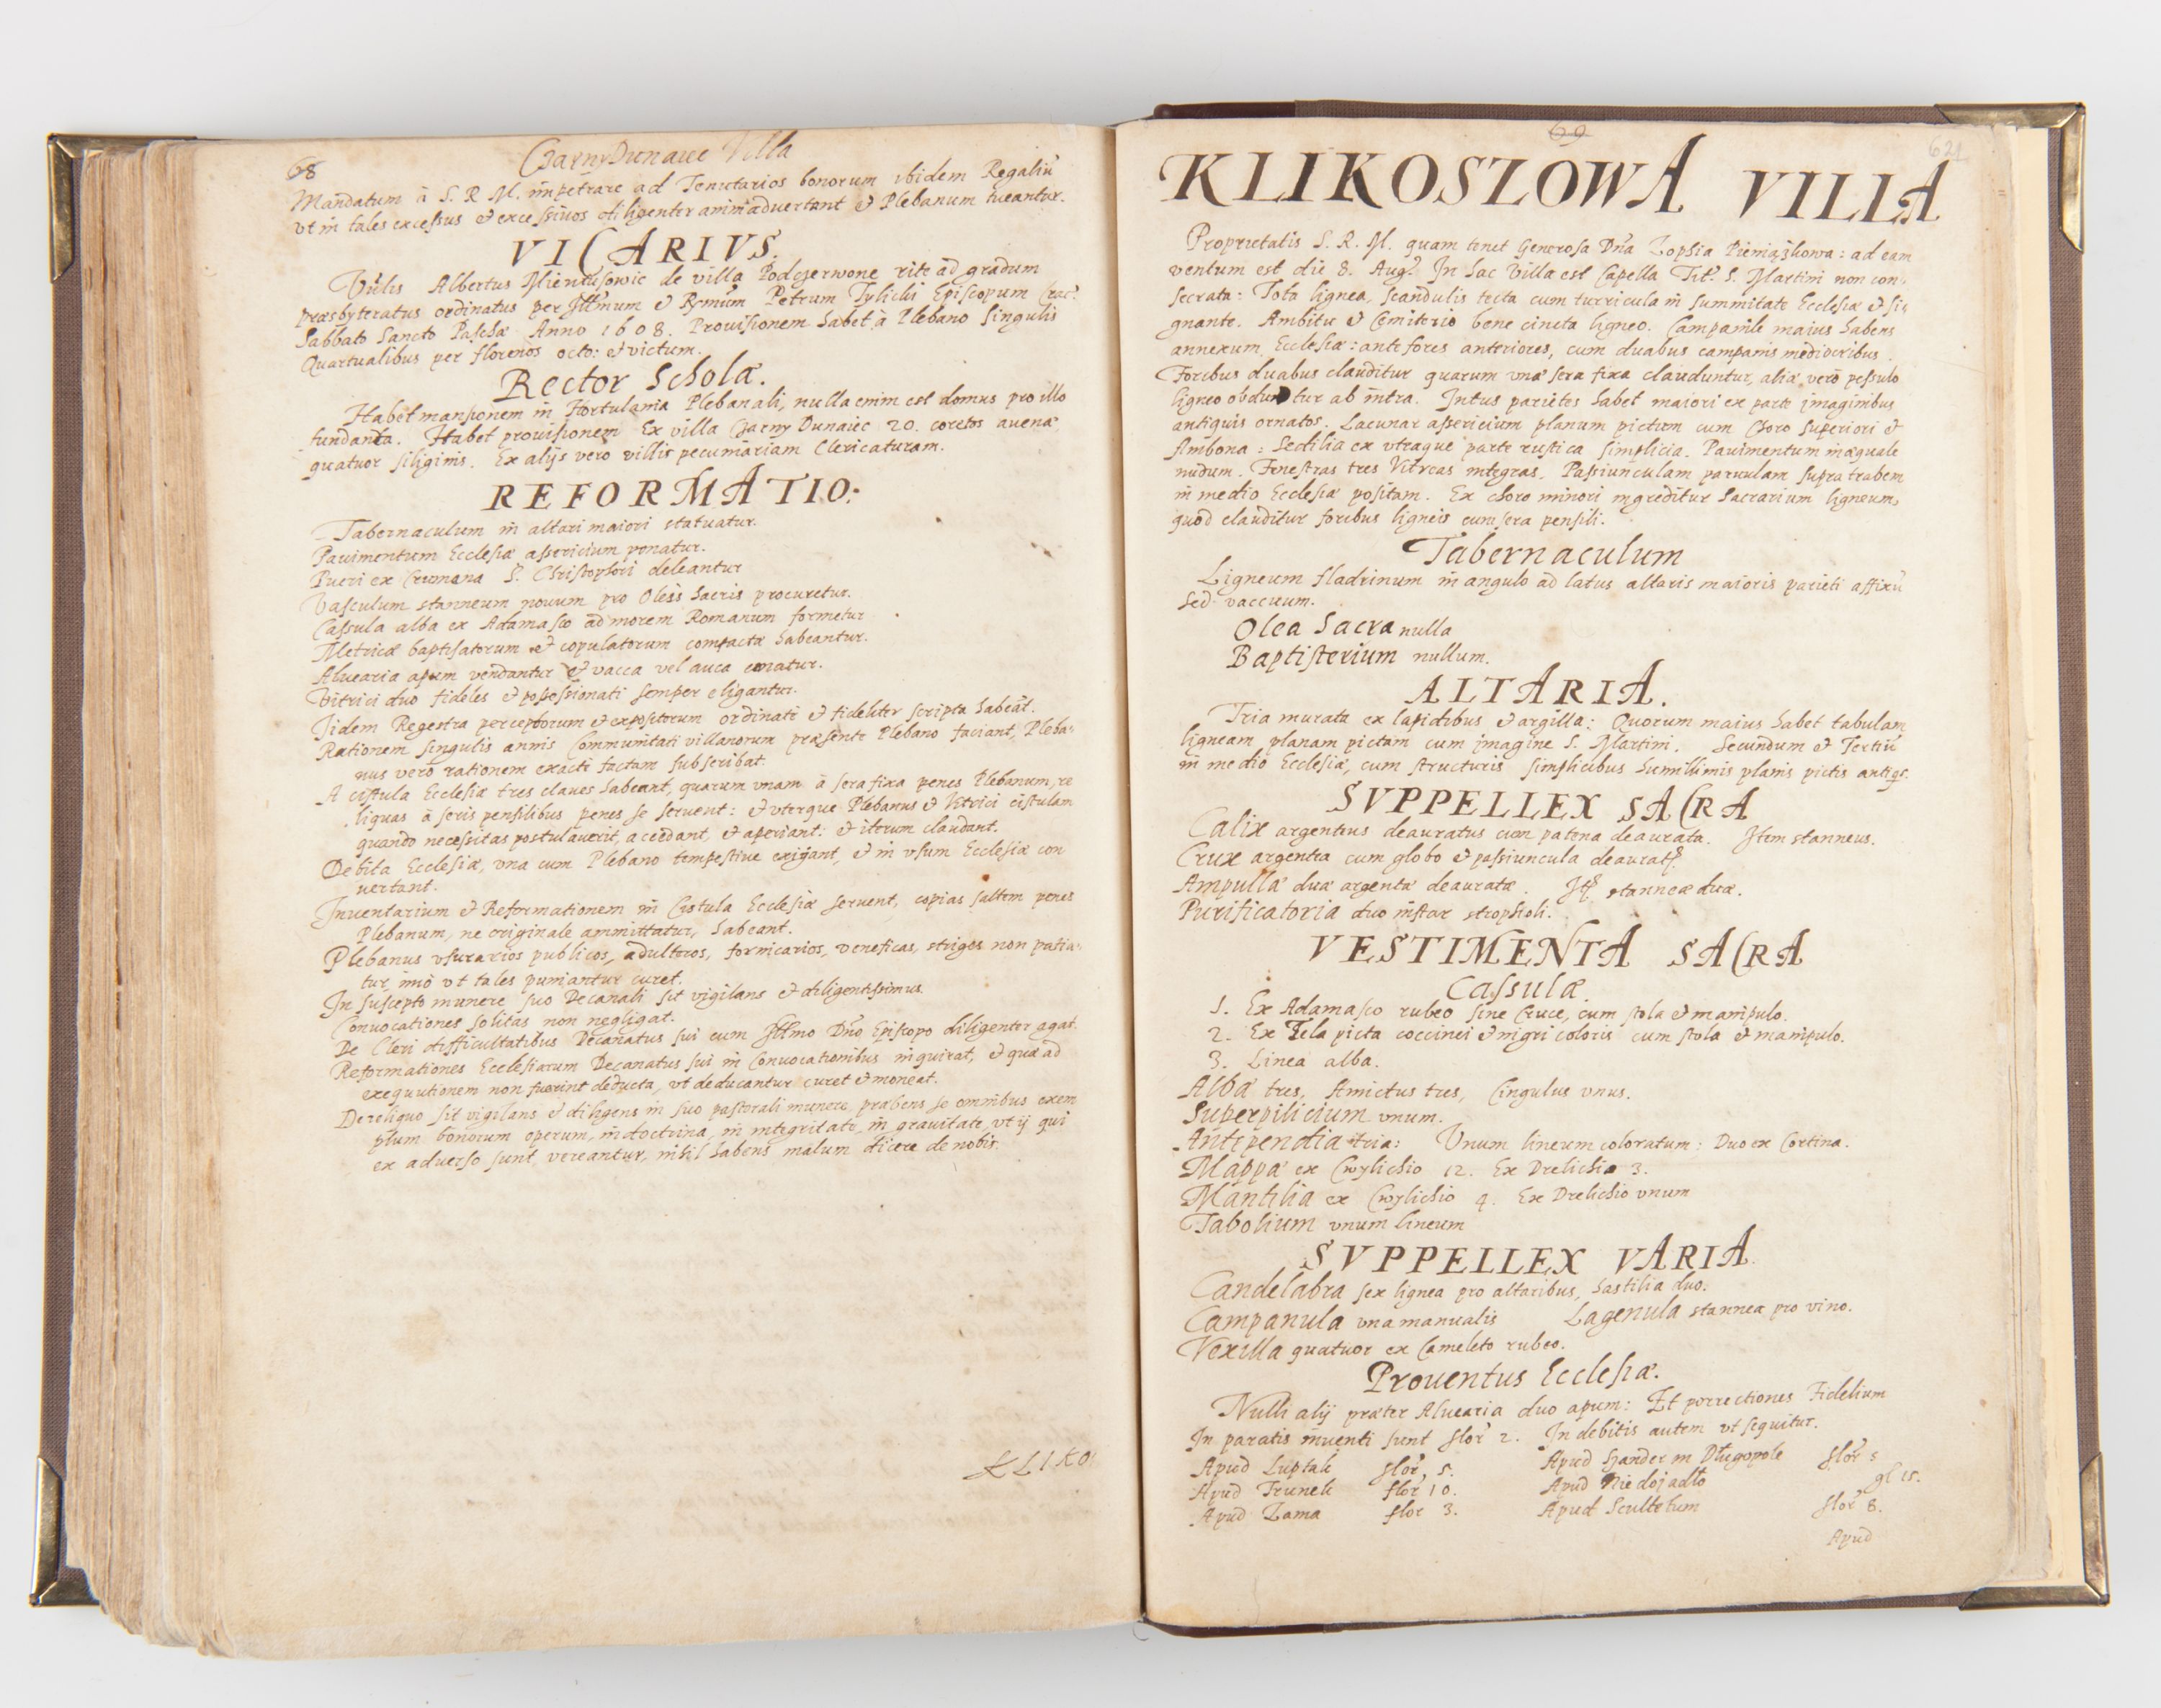 68
Czarny Dunaiec Villa
Mandatum à S. R. M. impetrare ad Tenutarios bonorum ibidem Regaliũ
vt in tales excessus et excessiuos diligenter animaduertant et Plebanum tueantur.
VICARIVS.
Albertus de villa Podczerwone rite ad gradum
præsbyteratus ordinatus per Illm̃um et Rm̃um Petrum Tylicki Episcopum Crac:
Sabbato Sancto Paschæ Anno 1608. Prouisionem habet à Plebano singulis
Quartualibus per florenos octo: et victum.
Rector Scholæ.
Habet mansionem in Hortulania Plebanali, nulla enim est domus pro illo
fundanda. Habet prouisionem Ex villa Czarny Dunaiec 20. coretos auenæ,
quatuor siliginis. Ex alijs vero villis pecuniariam Clericaturam.
REFORMATIO:
Tabernaculum in altari maiori statuatur.
Pauimentum Ecclesiæ assericium ponatur.
Pueri ex Crumena S. Christophori deleantur
Vasculum stanneum nouum pro Oleis Sacris procuretur.
Cassula alba ex Adamasco ad morem Romanum formetur
Metricæ baptisatorum et copulatorum compactæ habeantur.
Aluearia apum vendantur et vacca vel auca ematur.
Vitrici duo fideles et possessionati semper eligantur.
Iidem Regestra perceptorum et expositorum ordinatè et fideliter scripta habeãt.
Rationem singulis annis Communitati villanorum præsente Plebano faciant, Pleba-
nus verò rationem exactè factam subscribat.
A cistula Ecclesiæ tres claues habeant, quarum vnam à sera fixa penes Plebanum, re
liquas à seris pensilibus penes se seruent: et vterque Plebanus et Vitrici cistulam
quando necessitas postulauerit, accedant, et aperiant: et iterum claudant.
Debita Ecclesiæ, vna cum Plebano tempestiue exigant, et in vsum Ecclesiæ con
uertant.
Inuentarium et Reformationem in Cistula Ecclesiæ seruent, copias saltem penes
Plebanum, ne originale ammittatur, habeant.
Plebanus vsurarios publicos, adulteros, fornicarios, veneficas, striges non patia-
tur, imò vt tales puniantur curet.
In suscepto munere suo Decanali sit vigilans et diligentissimus.
Conuocationes solitas non negligat.
De Cleri difficultatibus Decanatus sui cum Illmo Dño Episcopo diligenter agat.
Reformationes Ecclesiarum Decanatus sui in Conuocationibus inquirat, et quæ ad
exequutionem non fuerint deducta, vt deducantur curet et moneat.
De reliquo sit vigilans et diligens in suo pastorali munere, præbens se omnibus exem
plum bonorum operum, in doctrina, in integritate, in grauitate, vt ij qui
ex aduerso sunt, vereantur, nihil habens malum dicere de nobis.
KLIKO
69
KLIKOSZOWA VILLA
Proprietatis S. R. M. quam tenet Generosa Dña Zophia Pieniążkowa: ad eam
ventum est die 8. Augˀ. In hac Villa est Capella Titˀ. S. Martini non con-
secrata: Tota lignea, scandulis tecta cum turricula in summitate Ecclesiæ et si
gnante. Ambitu et Cemiterio bene cincta ligneo. Campanile maius habens
annexum Ecclesiæ: ante fores anteriores, cum duabus campanis mediocribus.
Foribus duabus clauditur quarum vnæ sera fixa clauduntur, aliæ verò pessulo
ligneo obduntur ab intra. Intus parietes habet maiori ex parte imaginibus
antiquis ornatos. Lacunar assericium planum pictum cum Choro superiori et
Ambona: Sectilia ex vtraque parte rustica simplicia. Pauimentum inæquale
nudum. Fenestras tres vitreas integras. Passiunculam paruulam supra trabem
in medio Ecclesiæ positam. Ex choro minori ingreditur Sacrarium ligneum,
quod clauditur foribus ligneis cum sera pensili.
Tabernaculum
Ligneum fladrinum in angulo ad latus altaris maioris parieti affixũ
sed vaccuum.
Olea Sacra nulla
Baptisterium nullum.
ALTARIA.
Tria murata ex lapidibus et argilla: Quorum maius habet tabulam
ligneam planam pictam cum imagine S. Martini. Secundum et Tertiũ
in medio Ecclesiæ, cum structuris simplicibus humillimis planis pictis antiqs.
SVPPELLEX SACRA
Calix argenteus deauratus cum patena deaurata. Item stanneus.
Crux argentea cum globo et passiuncula
Ampullæ duæ argenteæ deauratæ. stanneæ duæ.
Purificatoria duo instar strophioli.
VESTIMENTA SACRA
Cassulæ.
1. Ex Adamasco rubeo sine Cruce, cum stola et manipulo.
2. Ex Tela picta coccinei et nigri coloris cum stola et manipulo.
3. Linea alba.
Albæ tres, Amictus tres, Cingulus vnus.
Superpilicium vnum.
Antipendia tria: Vnum lineum coloratum: Duo ex Cortina.
Mappæ ex Cwylichio 12. Ex Drelichio 3.
Mantilia ex Cwylichio 4. Ex Drelichio vnum
Tabolium vnum lineum
SVPPELLEX VARIA.
Candelabra sex lignea pro altaribus, hastilia duo.
Campanula vna manualis Lagenula stannea pro vino.
Vexilla quatuor ex Cameleto rubeo.
Prouentus Ecclesiæ.
Nulli alij præter Aluearia duo apum: Et porrectiones Fidelium
In paratis inuenti sunt florˀ 2. In debitis autem vt sequitur.
Apud Luptak florˀ, 5. Apud Hander in Długopole florˀ 5
Apud Trunek florˀ 10. Apud Niedojadło gl 15.
Apud Zama flor 3. Apud Scultetum florˀ 8.
Apud